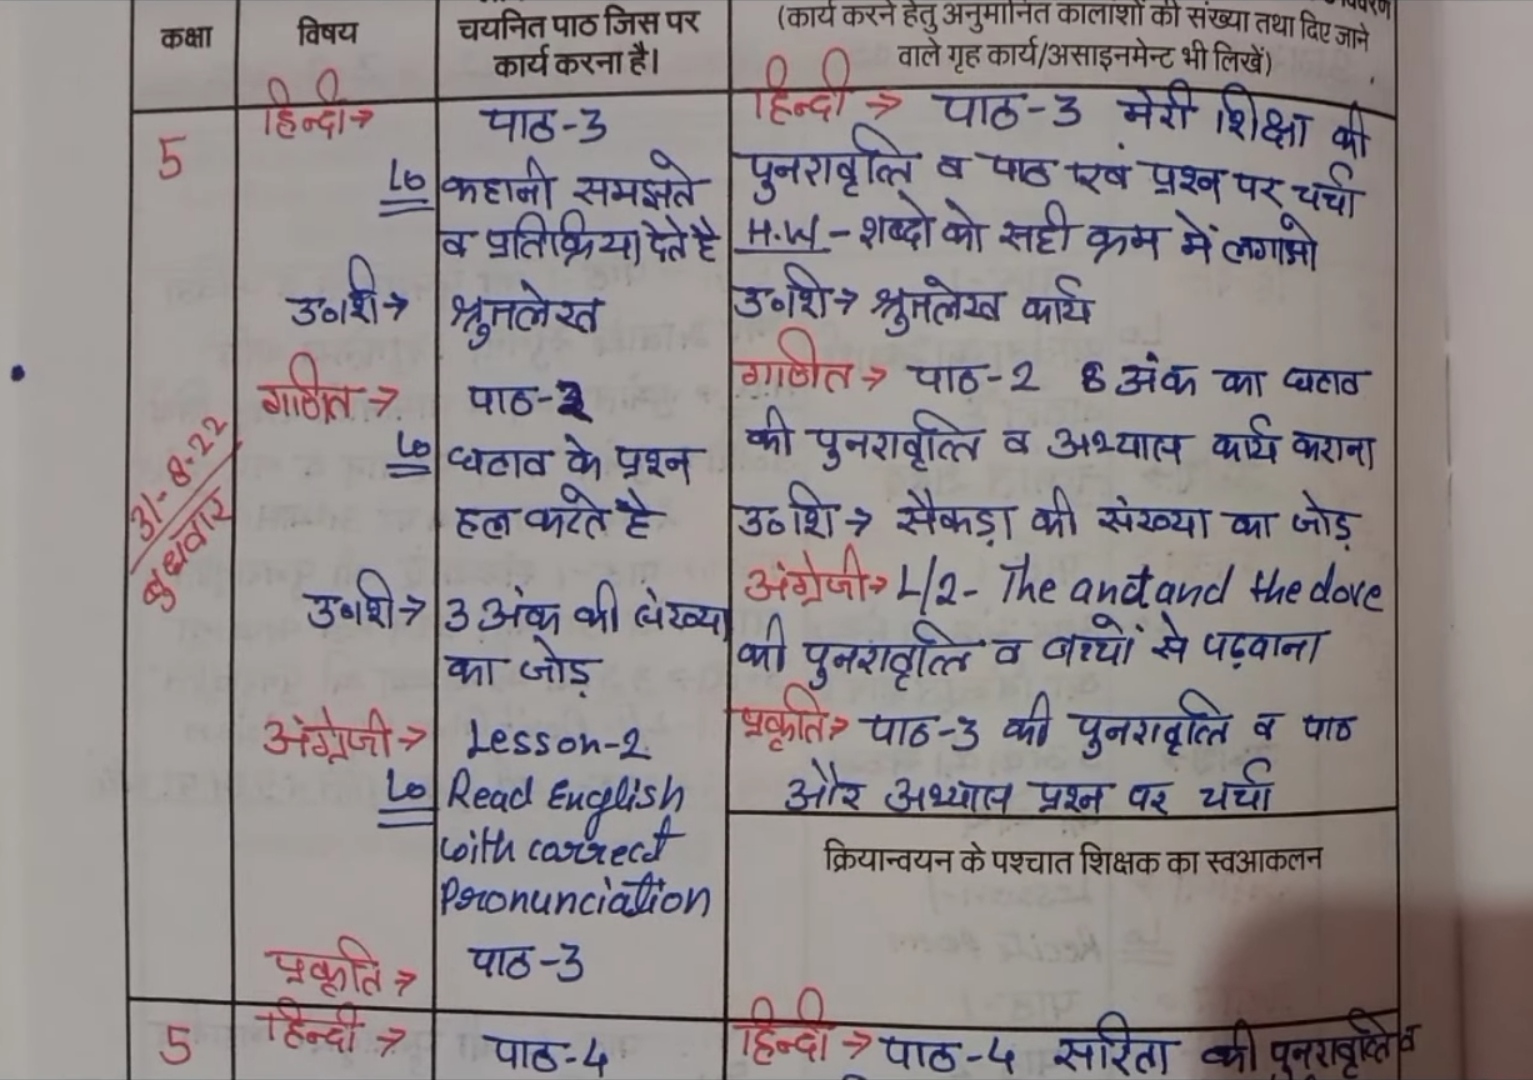 कक्षा
विषय
चयनित पाठ जिस पर
कार्य करना है।
(कार्य करने हेतु अनुमानित कालांशों की संख्या तथा दिए जाने
वाले गृह कार्य/असाइनमेन्ट भी लिखें)
5
31-8-22
बुधवार
हिन्दी→
पाठ-3
Lo कहानी समझते
व प्रतिक्रिया देते है
उ०शि→ श्रुतलेख
गणित→ पाठ-2
Lo घटाव के प्रश्न
हल करते है
उ०शि→ 3 अंक की संख्या
का जोड़
अंग्रेजी→ Lesson-2
Lo Read English
with correct
Pronunciation
प्रकृति→ पाठ-3
हिन्दी→ पाठ-3 मेरी शिक्षा की
पुनरावृत्ति व पाठ एवं प्रश्न पर चर्चा
H.W - शब्दो को सही क्रम में लगाओ
उ०शि→ श्रुतलेख कार्य
गणित→ पाठ-2 6 अंक का घटाव
की पुनरावृत्ति व अभ्यास कार्य कराना
उ०शि→ सैकड़ा की संख्या का जोड़
अंग्रेजी→ L/2- The ant and the dove
की पुनरावृत्ति व बच्चों से पढ़वाना
प्रकृति→ पाठ-3 की पुनरावृत्ति व पाठ
और अभ्यास प्रश्न पर चर्चा
क्रियान्वयन के पश्चात शिक्षक का स्वआकलन
5
हिन्दी→
पाठ-4
हिन्दी→ पाठ-4 सरिता की पुनरावृत्ति व